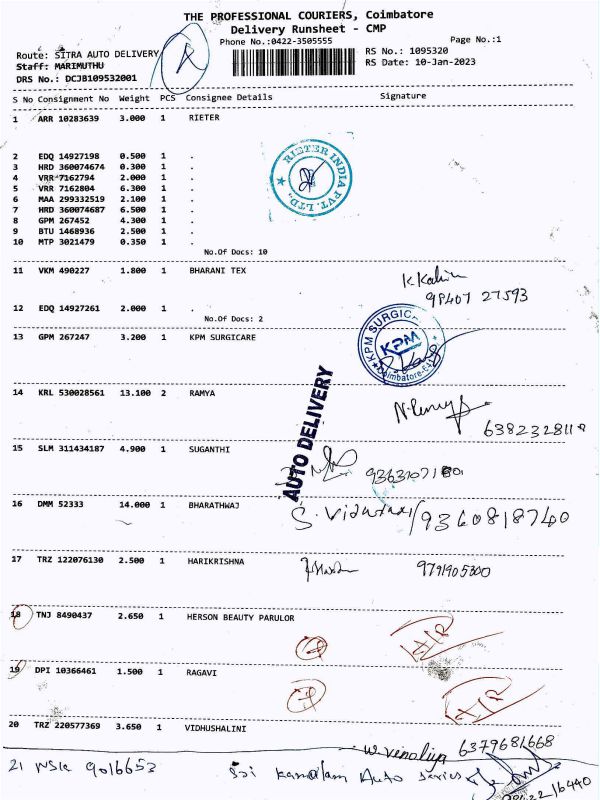 THE PROFESSIONAL COURIERS, Coimbatore
Delivery Runsheet - CMP
Phone No.:0422-3505555 Page No.:1
Route: SITRA AUTO DELIVERY RS No.: 1095320
Staff: MARIMUTHU RS Date: 10-Jan-2023
DRS No.: DCJB109532001
S No Consignment No Weight PCS Consignee Details Signature
1 ARR 10283639 3.000 1 RIETER
RIETER INDIA PVT. LTD.,
2 EDQ 14927198 0.500 1 .
3 HRD 360074674 0.300 1 .
4 VRR 7162794 2.000 1 .
5 VRR 7162804 6.300 1 .
6 MAA 299332519 2.100 1 .
7 HRD 360074687 6.500 1 .
8 GPM 267452 4.300 1 .
9 BTU 1468936 2.500 1 .
10 MTP 3021479 0.350 1 .
No.Of Docs: 10
11 VKM 490227 1.800 1 BHARANI TEX
98407 27593
12 EDQ 14927261 2.000 1 .
No.Of Docs: 2
13 GPM 267247 3.200 1 KPM SURGICARE
KPM SURGICARE
KPM
Coimbatore
14 KRL 530028561 13.100 2 RAMYA
AUTO DELIVERY
15 SLM 311434187 4.900 1 SUGANTHI
16 DMM 52333 14.000 1 BHARATHWAJ
9360818740
17 TRZ 122076130 2.500 1 HARIKRISHNA
9791905300
18 TNJ 8490437 2.650 1 HERSON BEAUTY PARULOR
19 DPI 10366461 1.500 1 RAGAVI
20 TRZ 220577369 3.650 1 VIDHUSHALINI
W. Vinoliya 6379681668
21 NSK 9016653 Sri Kamalam Auto series